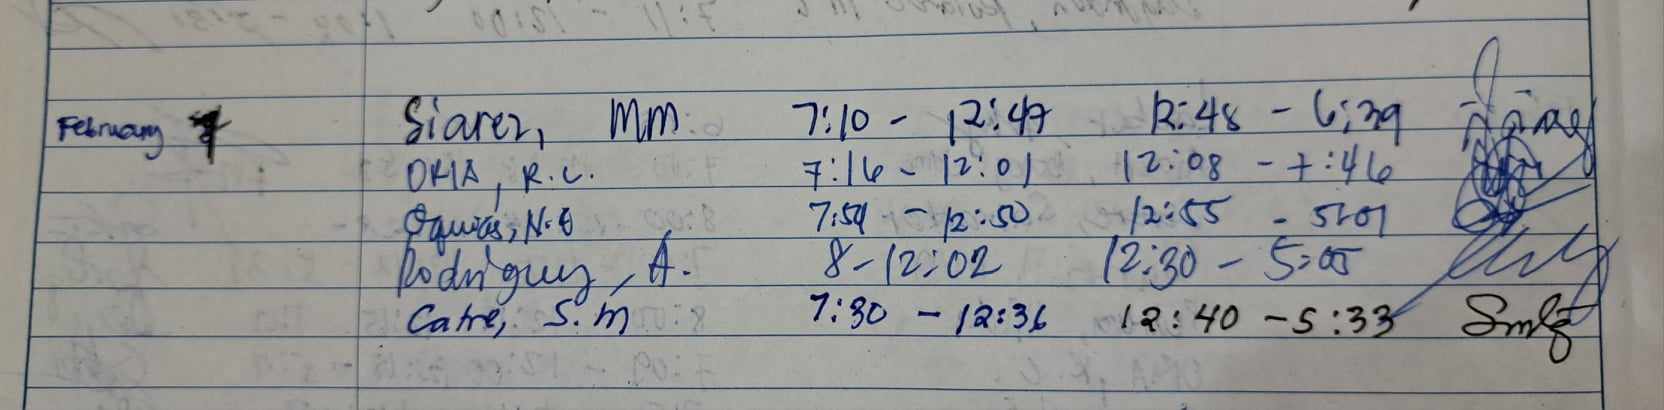 February 7 Siarez, MM 7:10 - 12:47 12:48 - 6:39
ORIA, R.C. 7:16 - 12:01 12:08 - 7:46
N.O 7:54 - 12:50 12:55 - 5:01
Rodriguez, A. 8 - 12:02 12:30 - 5:05
Catre, S.M 7:30 - 12:36 12:40 - 5:33